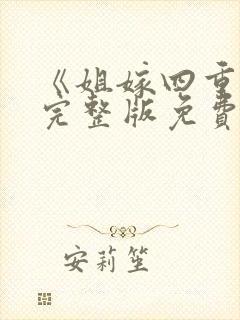 《姐嫁四重
完整版免費
安莉笙